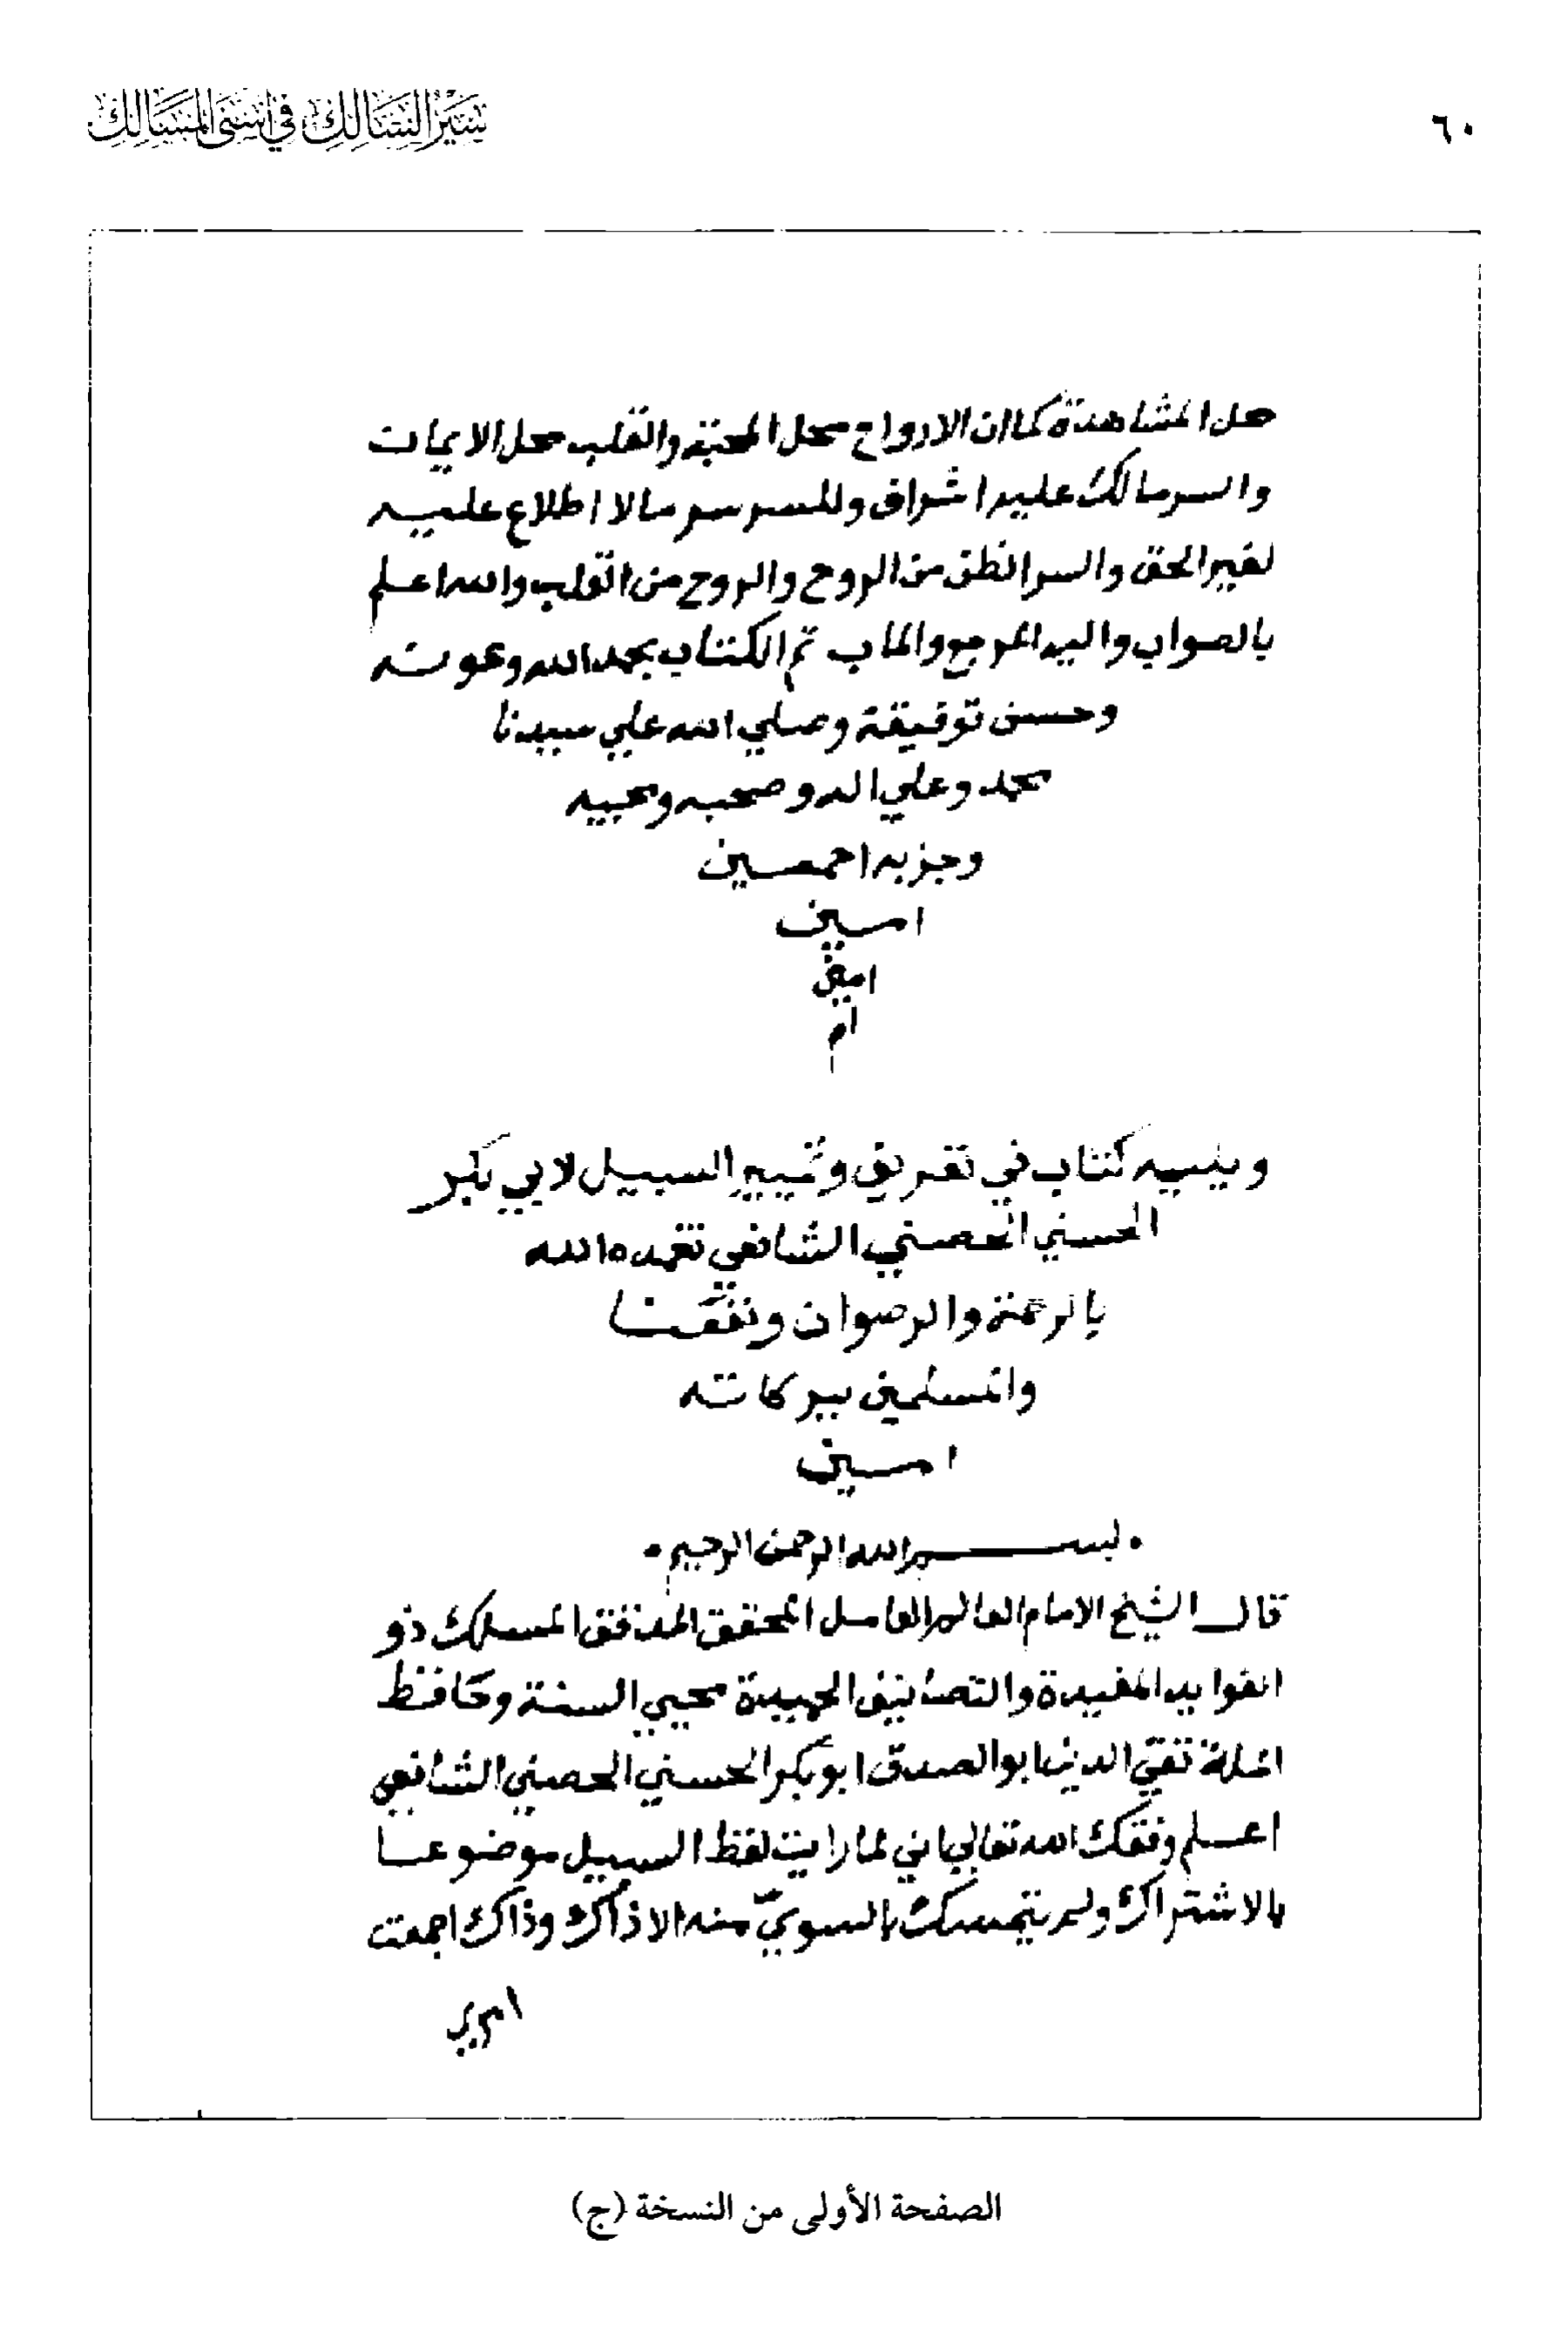 ٦٠
سير السالك في أسنى المسالك
محل المشاهدة كما ان الارواح محل المحبة والقلب محل الايمان
والسر مالك عليه اشراف وللسر سر مالا اطلاع عليه
لغير الحق والسر الطف من الروح والروح من القلب والله اعلم
بالصواب واليه المرجع والماب تم الكتاب بحمد الله وعونه
وحسن توفيقة وصلي الله علي سيدنا
محمد وعلي اله وصحبه ومحبيه
وحزبه اجمعين
امين
امين
ام
ويليه كتاب في تفريق وتمييز السبيل لابي بكر
الحسني الحصني الشافعي تغمده الله
بالرحمة والرضوان ونفعنا
والمسلمين ببركاته
امين
بسم الله الرحمن الرحيم
قال الشيخ الامام العالم العامل المحقق المدقق المسلك ذو
الفوايد المفيدة والتصانيف الحميدة محيي السنة وحافظ
الملة تقي الدين ابو الصدق ابو بكر الحسني الحصني الشافعي
اعلم وفقك الله تعالي اني لما رايت لفظ السبيل موضوعا
بالاشتراك ولم يتمسك بالسوي منه الا ذاك وذاك اجمعت
الصفحة الأولى من النسخة (ج)